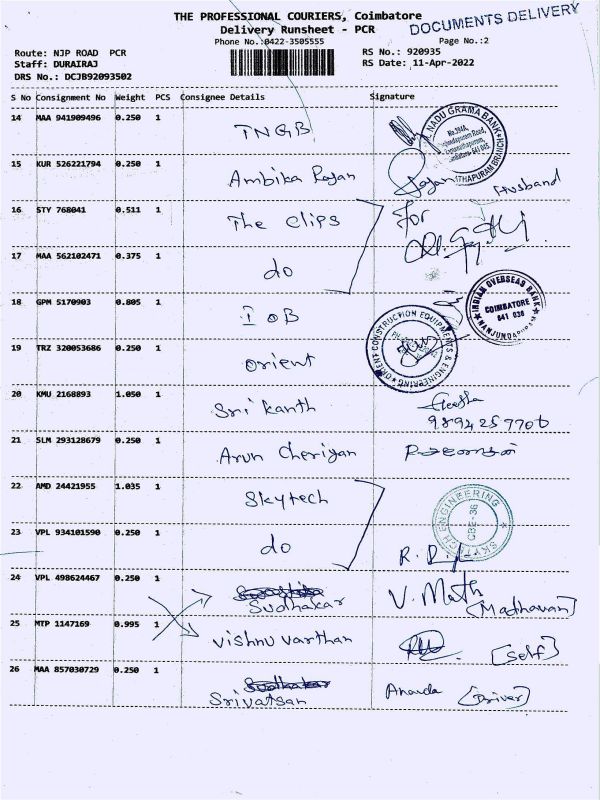 THE PROFESSIONAL COURIERS, Coimbatore
DOCUMENTS DELIVERY
Delivery Runsheet - PCR
Phone No.:0422-3505555
Page No.:2
Route: NJP ROAD PCR
RS No.: 920935
Staff: DURAIRAJ
RS Date: 11-Apr-2022
DRS No.: DCJB92093502
S No Consignment No Weight PCS Consignee Details Signature
14 MAA 941909496 0.250 1 TNGB
NADU GRAMA BANK
15 KUR 526221794 0.250 1 Ambika Rajan Rajan Husband
16 STY 768041 0.511 1 The Clips For
17 MAA 562102471 0.375 1 do
18 GPM 5170903 0.805 1 IOB
INDIAN OVERSEAS BANK
COIMBATORE
641 036
NANJUNDAPURAM
19 TRZ 320053686 0.250 1 orient
ORIENT CONSTRUCTION EQUIPMENTS & ENGINEERING
20 KMU 2168893 1.050 1 Sri Kanth
21 SLM 293128679 0.250 1 Arun Cheriyan
22 AMD 24421955 1.035 1 Skytech
SKYTECH ENGINEERING
CBE-36
23 VPL 934101590 0.250 1 do
24 VPL 498624467 0.250 1 Sudhakar V. Math [Madhavan]
25 MTP 1147169 0.995 1 Vishnu varthan [Self]
26 MAA 857030729 0.250 1 Sudhakar
Srivatsan Ananda [Driver]